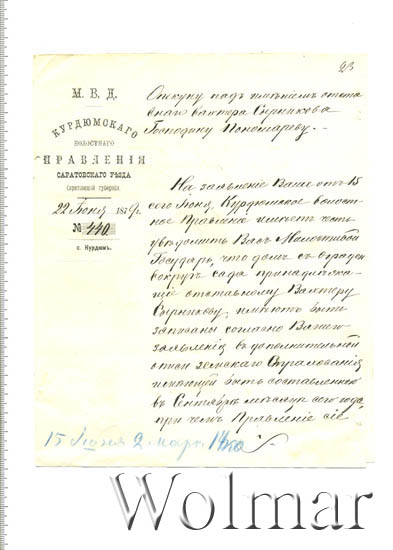 23
М. В. Д.
КУРДЮМСКАГО
ВОЛОСТНАГО
ПРАВЛЕНІЯ
САРАТОВСКАГО УѢЗДА
Саратовской губерніи.
22 Іюня 1879 г.
№ 440
с. Курдюм.
Опекуну надъ имѣніемъ отста
внаго вахтера Сырникова
Господину Пономареву.
На заявленіе Ваше отъ 15
сего Іюня, Курдюмское волост
ное Правленіе имѣетъ честь
увѣдомить Васъ Милостивый
Государь, что домъ съ оградой
вокругъ сада принадлежа
щіе отставному Вахтеру
Сырникову, имѣютъ быть
записаны согласно Вашего
заявленія въ дополнительной
описи земскаго Страхованія
имѣющей быть составленной
въ Сентябрѣ мѣсяцѣ сего года,
при чемъ Правленіе сіе
15 Іюня 2 мар.
Wolmar